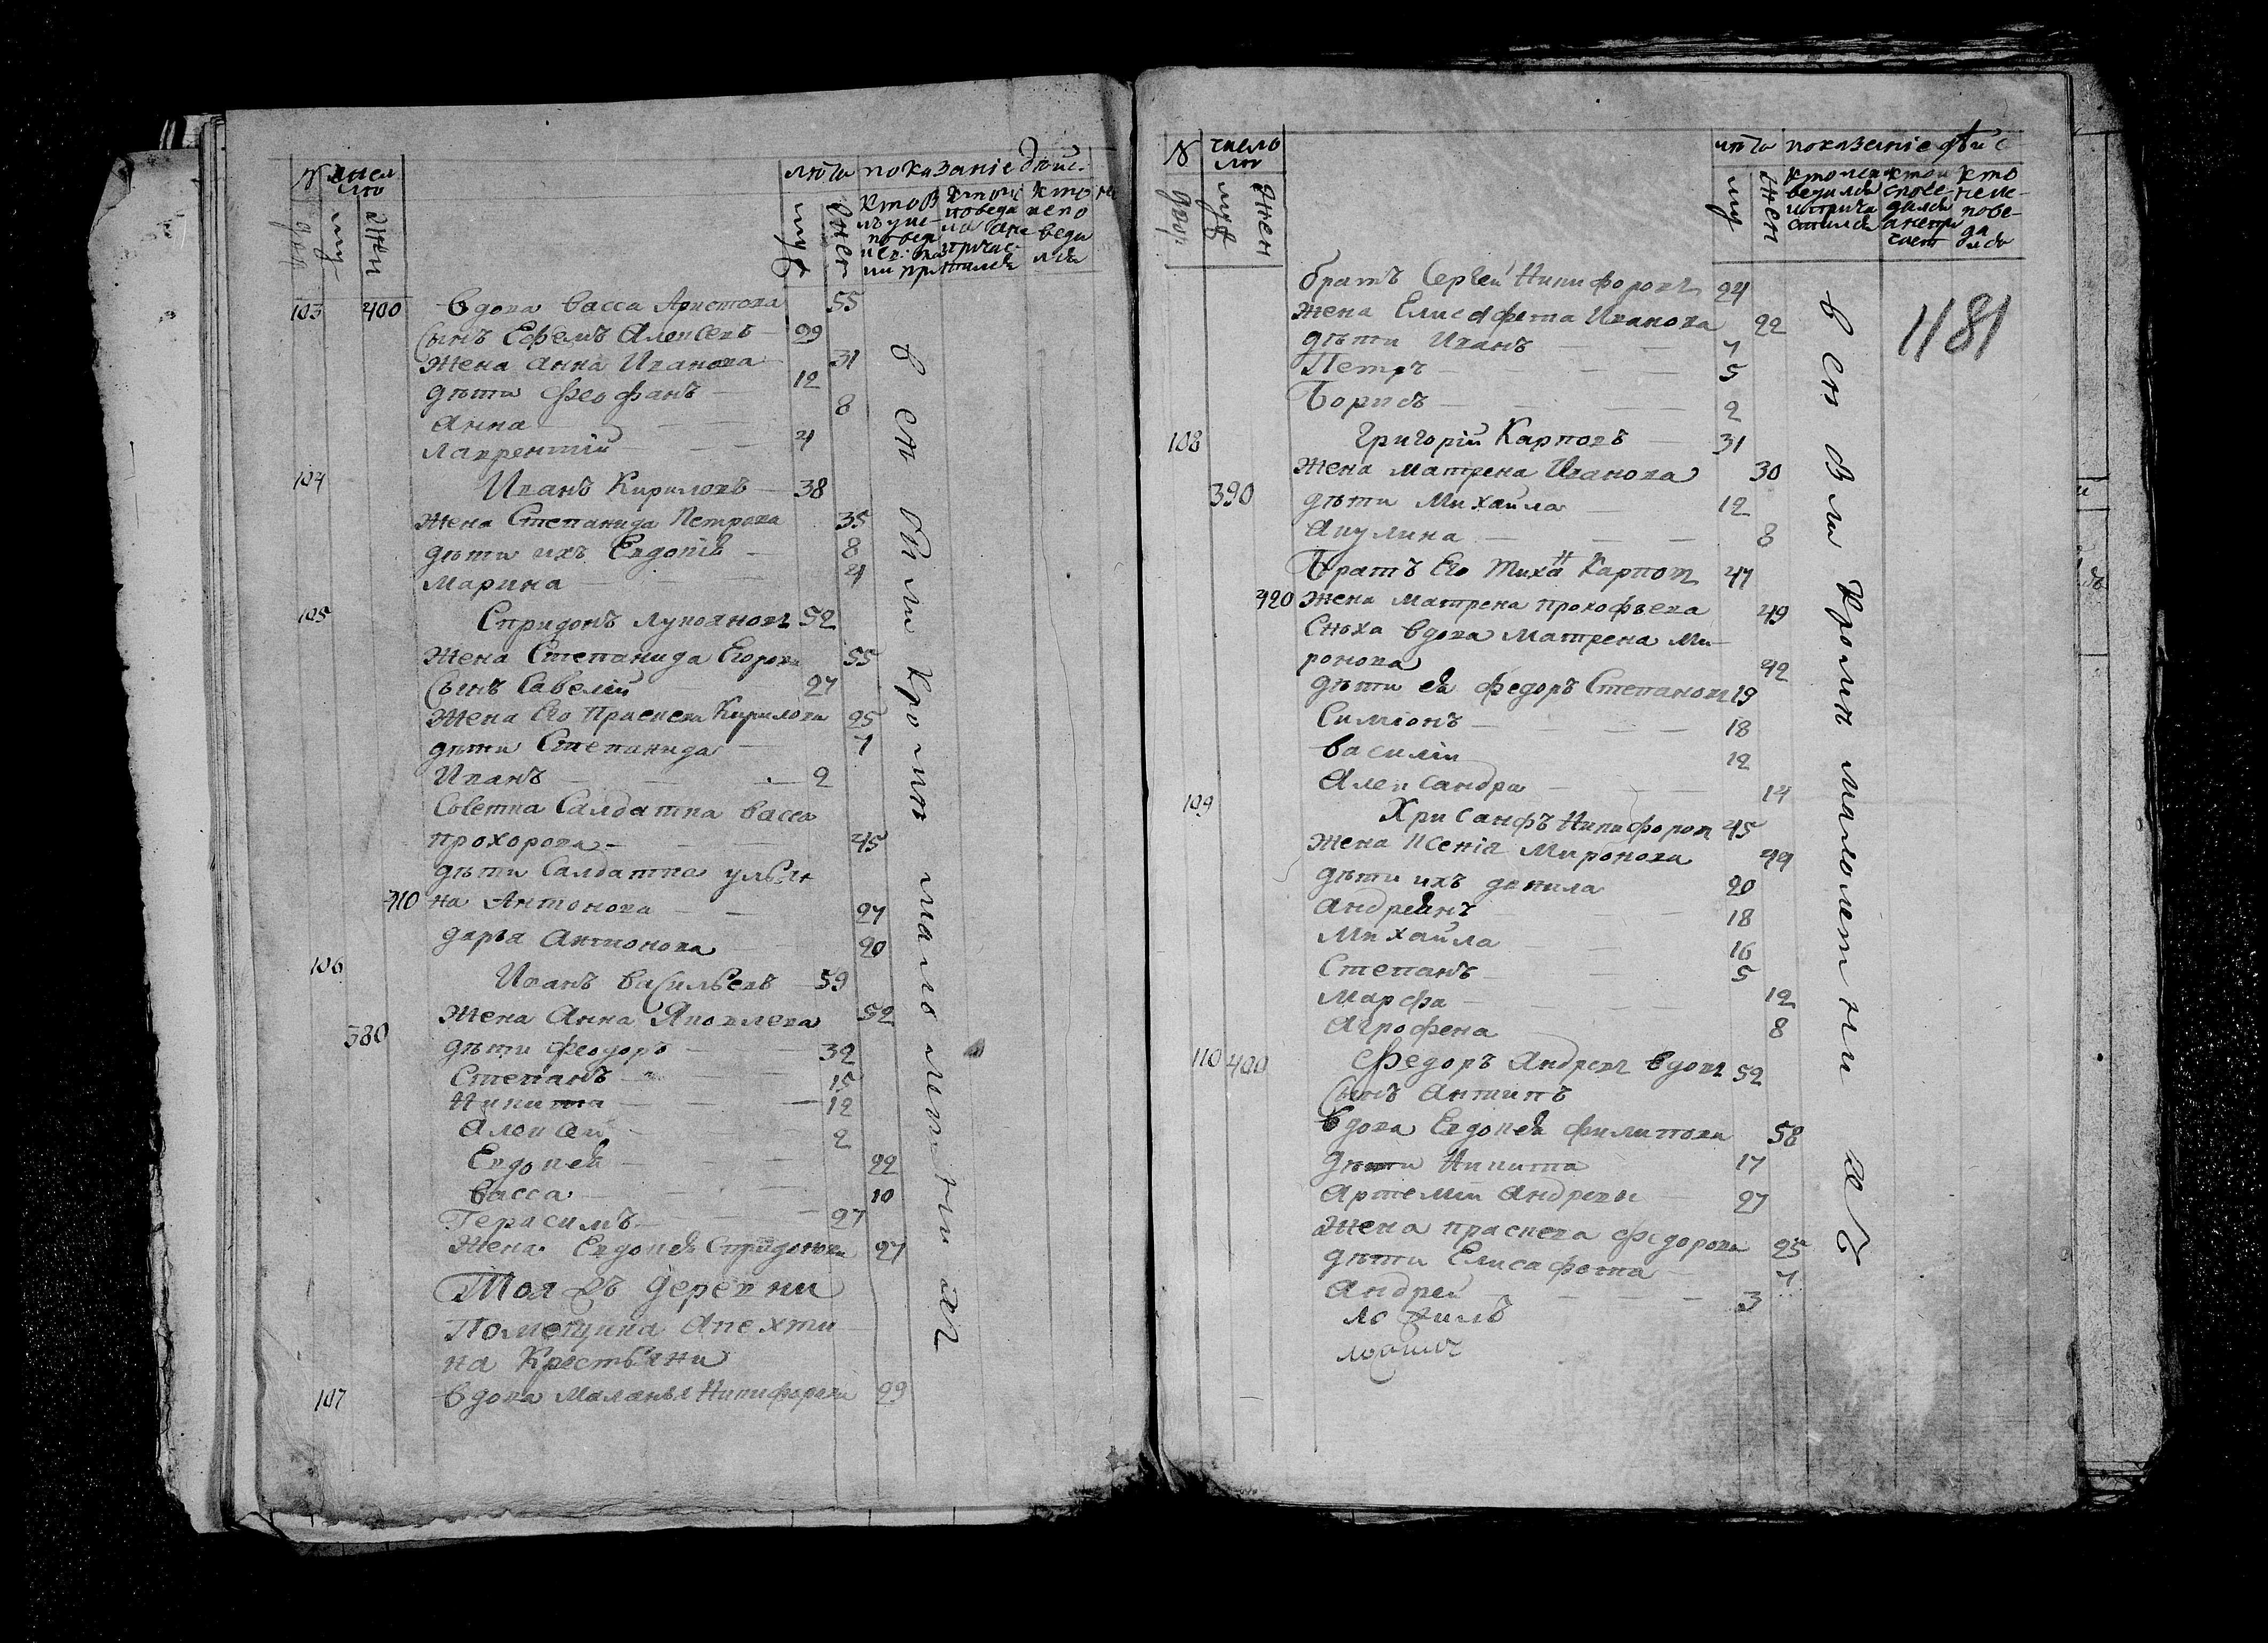 № число
двор муж жен
лѣта показанiе дѣйс.
муж жен
103 400 вдова васса Аристова 55
Сынъ Ефемъ Алексевъ 29
Жена Анна Иванова 31
дѣти Феофанъ 12
Анна 8
Лаврентiй 4
104 Иванъ Кириловъ 38
Жена Степанида Петрова 35
дѣти ихъ Евдокiѣ 8
Марина 4
105 Спридонъ Лукоановъ 52
Жена Степанида Егорова 55
Сынъ Савелiй 27
Жена Его Праскева Кирилова 25
дѣти Степанида 7
Иванъ 2
Салдатка васса
прохорова 45
дѣти Салдатка ульян
410 на Антонова 27
дарья Антонова 20
106 Иванъ васильевъ 59
Жена Анна Яковлева 52
380 дѣти феодоръ 32
Степанъ 15
Никита 12
Алексей 2
Евдокеѣ 22
васса 10
Герасимъ 27
Жена Евдокеѣ Спридонова 27
Тоя жъ деревни
Помещика Апехти
на Крестьяни
107 вдова Маланья Никифорова 99
вси были кромѣ малолетнихъ
№ число лю
двор муж жен
лѣта показанiе дѣйс
муж жен
1181
братъ Сергей Никифоровъ 24
Жена Елисафета Иванова 22
дѣти Иванъ 7
Петръ 5
Борисъ 2
108 Григорiй Карповъ 31
Жена Матрена Иванова 30
390 дѣти Михайла 12
Акулина 8
Братъ Его Тиханъ Карповъ 47
420 Жена Матрена прокофьева 49
Сноха вдова Матрена Ми-
ронова 42
дѣти еѣ Федоръ Степановъ 19
Симiонъ 18
василiй 12
Александра 14
109 Хрисанфъ Никифоровъ 45
Жена Ксенiя Миронова 49
дѣти ихъ данила 20
Андреянъ 18
Михайла 16
Степанъ 5
Марфа 12
Агрофена 8
110 400 Федоръ Андревъ вдовъ 52
Сынъ Антипъ
вдова Евдокеѣ филипова 58
дѣти Никита 17
Артемiй Андревы 27
Жена праскева федорова 25
дѣти Елисафета 7
Андрей 3
вси были кромѣ малолетнихъ